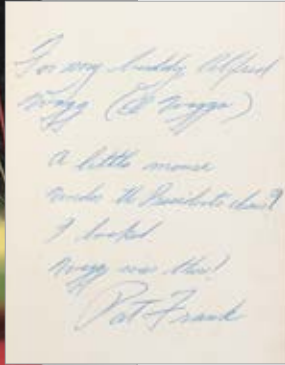 For my buddy Alfred
Wagg (
A little mouse
under the President's chair?
I looked
Wagg was there!
Pat Frank